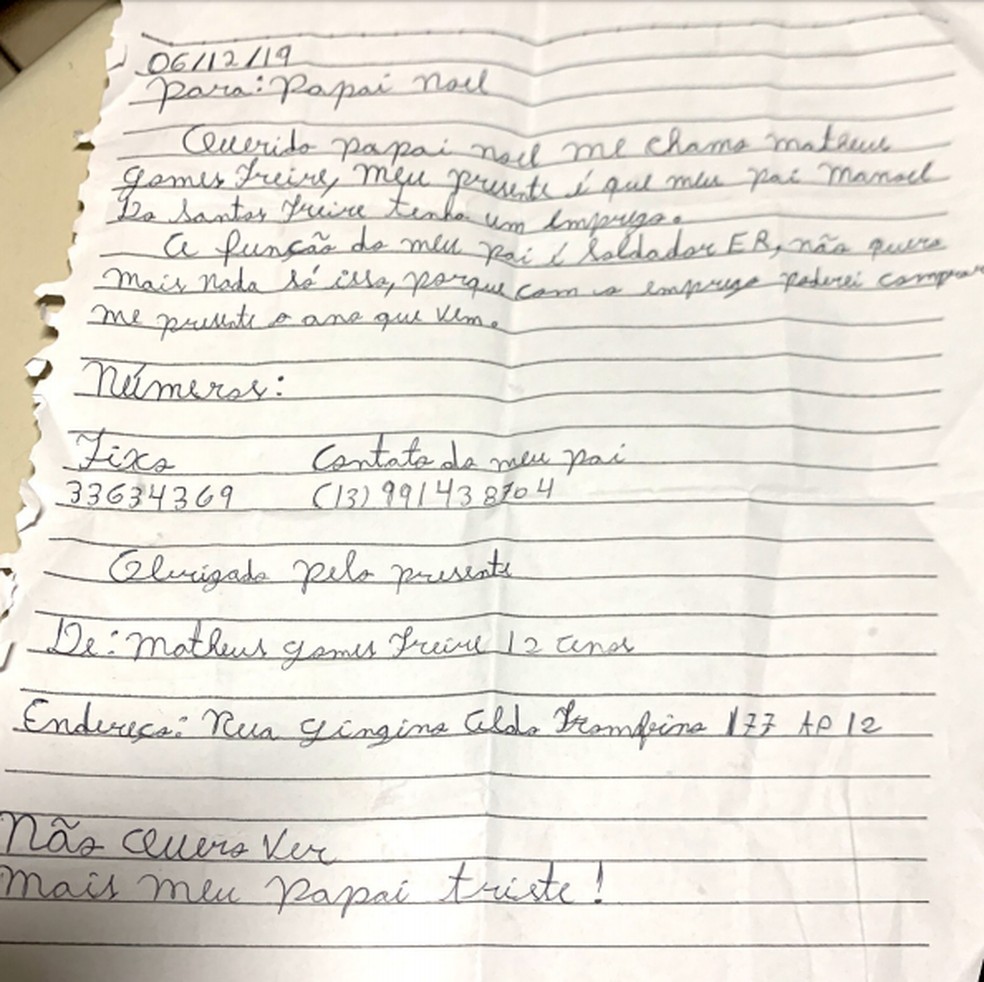 06/12/19
para: Papai noel
Querido papai noel me chamo matheus
gomes Freire, meu presente é que meu pai manoel
Do Santos Freire tenha um emprego.
A função do meu pai é Soldador ER, não quero
mais nada só isso, porque com o emprego poderei comprar
me presente o ano que vem.
Números:
Fixo Contato do meu pai
33634369 (13) 991438704
Obrigado pelo presente
De: Matheus gomes Freire 12 anos
Endereço: Rua Aldo 177 AP 12
Não Quero Ver
mais meu papai triste!